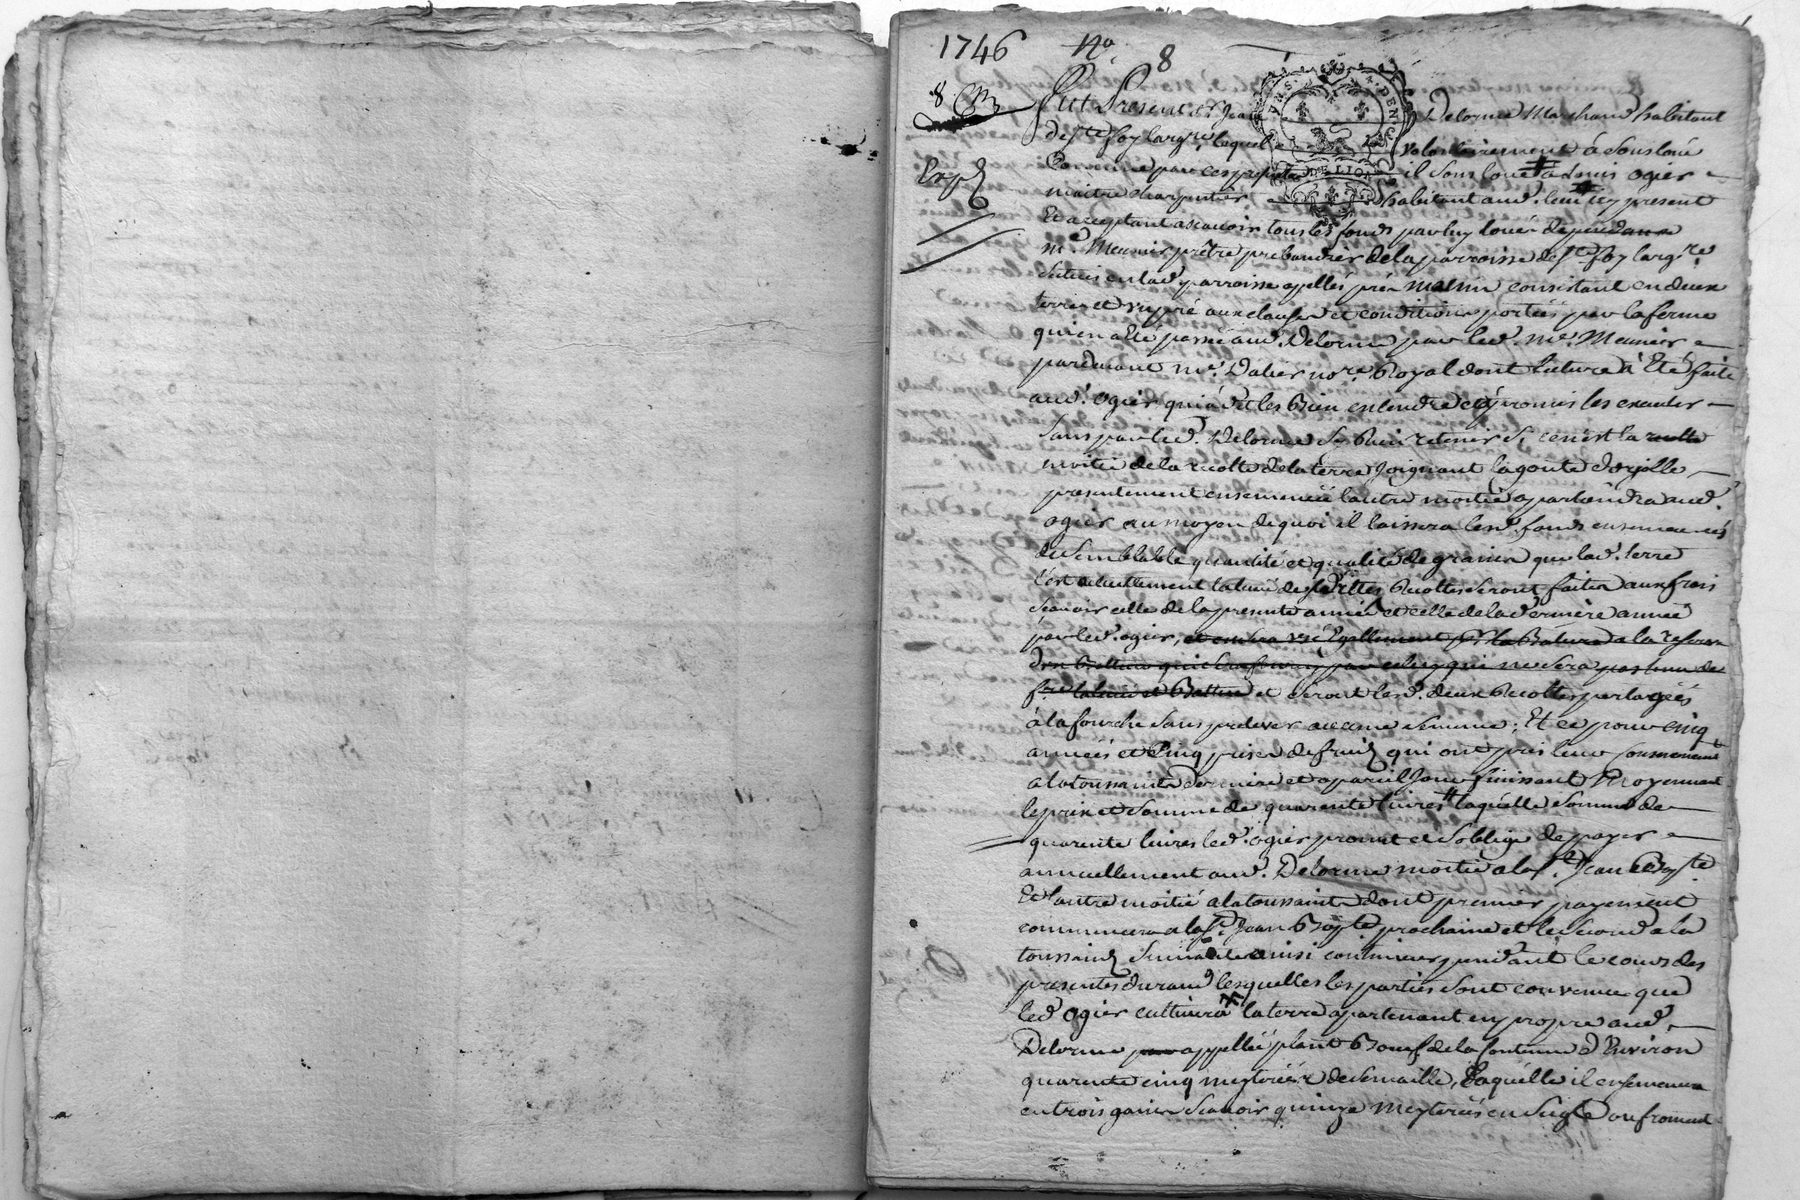 1746 No. 8
8.
Fut Present Sr Jean Delorme Marchand habitant
de Ste foy largre, lequel volontairement á Sousloué
Comme par ces presentes il Sousloue à Louis ogier
maitre charpentier habitant aud. lieu icy present
Et acceptant ascavoir tous les fonds par luy loués
Me. Meunier prêtre prebandier de la parroisse de Ste foy largre.
Scitués en lad. parroisse appellés pré consistant en deux
terres et un pré aux clauses et conditions portées par la ferme
qui en a été passée aud. Delorme par led. Me. Meunier
pardevant Me. Dalier nore. Royal dont lecture à Eté faite
aud. ogier qui á dit les Bien entendre et promis les executer
Sans par led. Delorme Sy Rien retenir Si ce n'est la
moitié de la recolte de la terre Joignant la goute
presentement ensemencée lautre moitié apartiendra aud.
ogier au moyen de quoi il laissera lesd. fonds ensemencés
de Semblable quantité et qualité de graines que lad. terre
l'est actuellement Recoltes Seront faites aux frais
Scavoir celle de la presente année et celle de la derniere année
par led. ogier, et a la reserve
celuy qui ne sera pas tenu de
et Seront lesd. deux Recoltes partagées
á la fourche Sans prelever aucune Semence; Et ce pour Cinq
années et Cinq prises de fruits qui ont pris leur commencement
a la toussaints derniere et a pareil Jour finissant Moyennant
le prix et Somme de quarente livres laquelle Somme de
quarente livres led. ogier promet et Soblige de payer
annuellement aud. Delorme moitié a la St. Jean Bapte.
Et lautre moitié a la toussaints dont premier payement
commencera a la St. Jean Bapte. prochaine et le second a la
toussaints Suivante ainsi continuer pendant le cours des
presentes durand lesquelles les parties Sont convenue que
led. ogier cultivera la terre apartenant en propre aud.
Delorme appellée plant Boeuf de la Contenue d'Environ
quarente cinq meyterées de Semaille, Laquelle il ensemencera
en trois Scavoir quinze Meyterées en Seigle ou froment